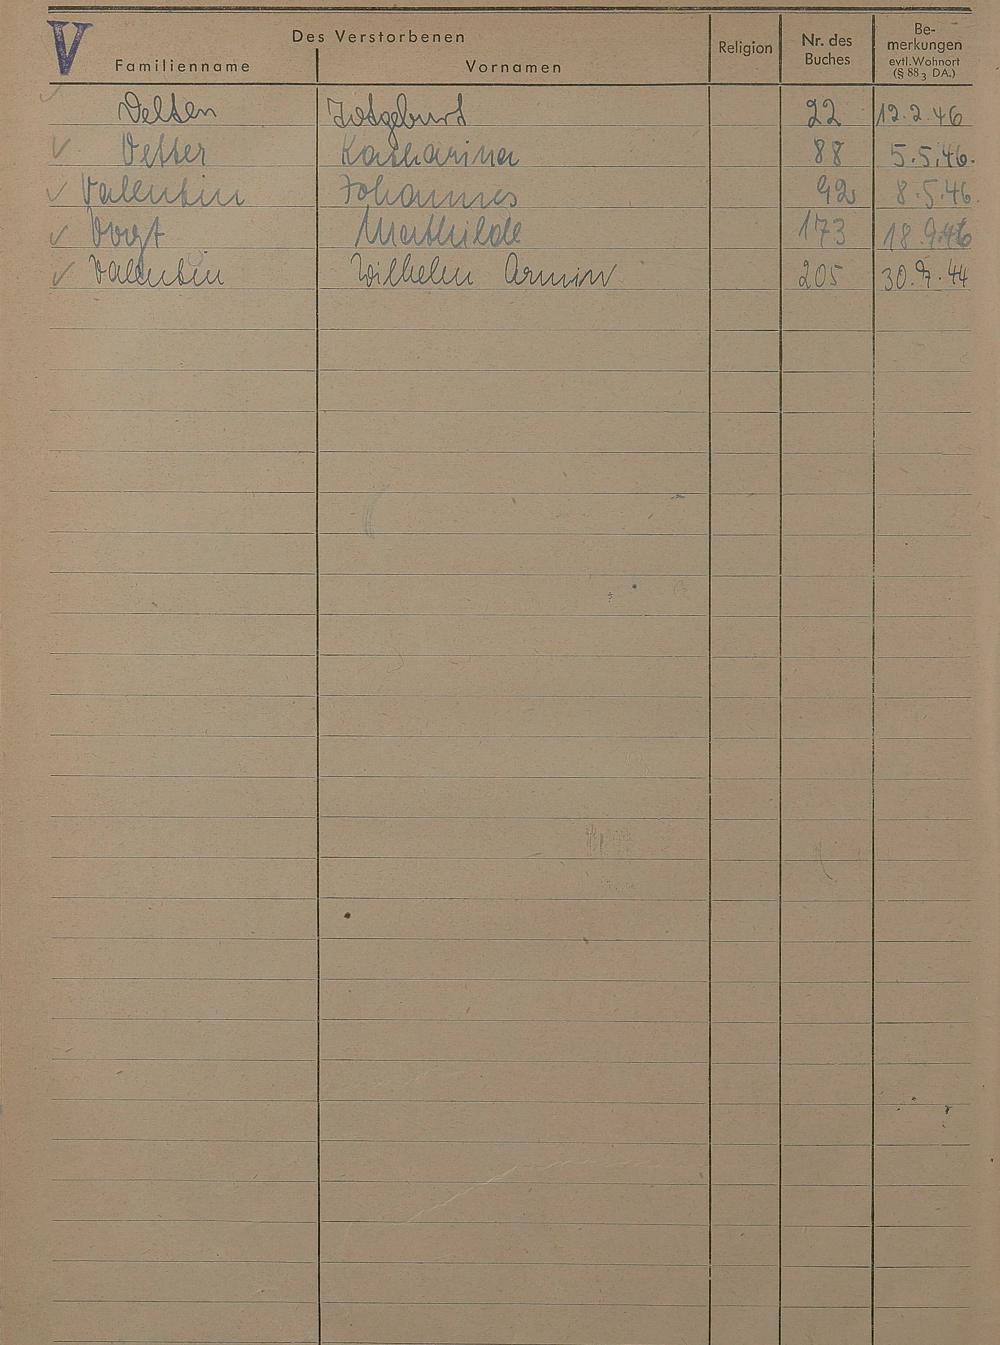 V
Des Verstorbenen
Familienname Vornamen Religion Nr. des Buches Be-merkungen evtl. Wohnort (§ 88 3 DA.)
Velten Totgeburt 22 12.2.46
Vetter Katharina 88 5.5.46.
Valentin Johannes 92 8.5.46.
Vogt Mathilde 173 18.9.46
Valentin Wilhelm Armin 205 30.9.44